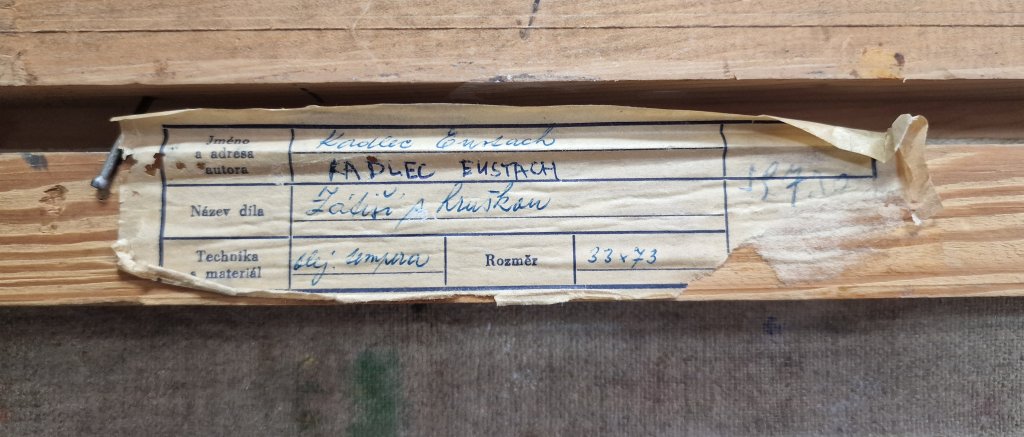 Jméno
a adresa
autora
Kadlec Eustach
KADLEC EUSTACH
Název díla
Zátiší s hruškou
Technika
a materiál
olej. tempera
Rozměr
33x73